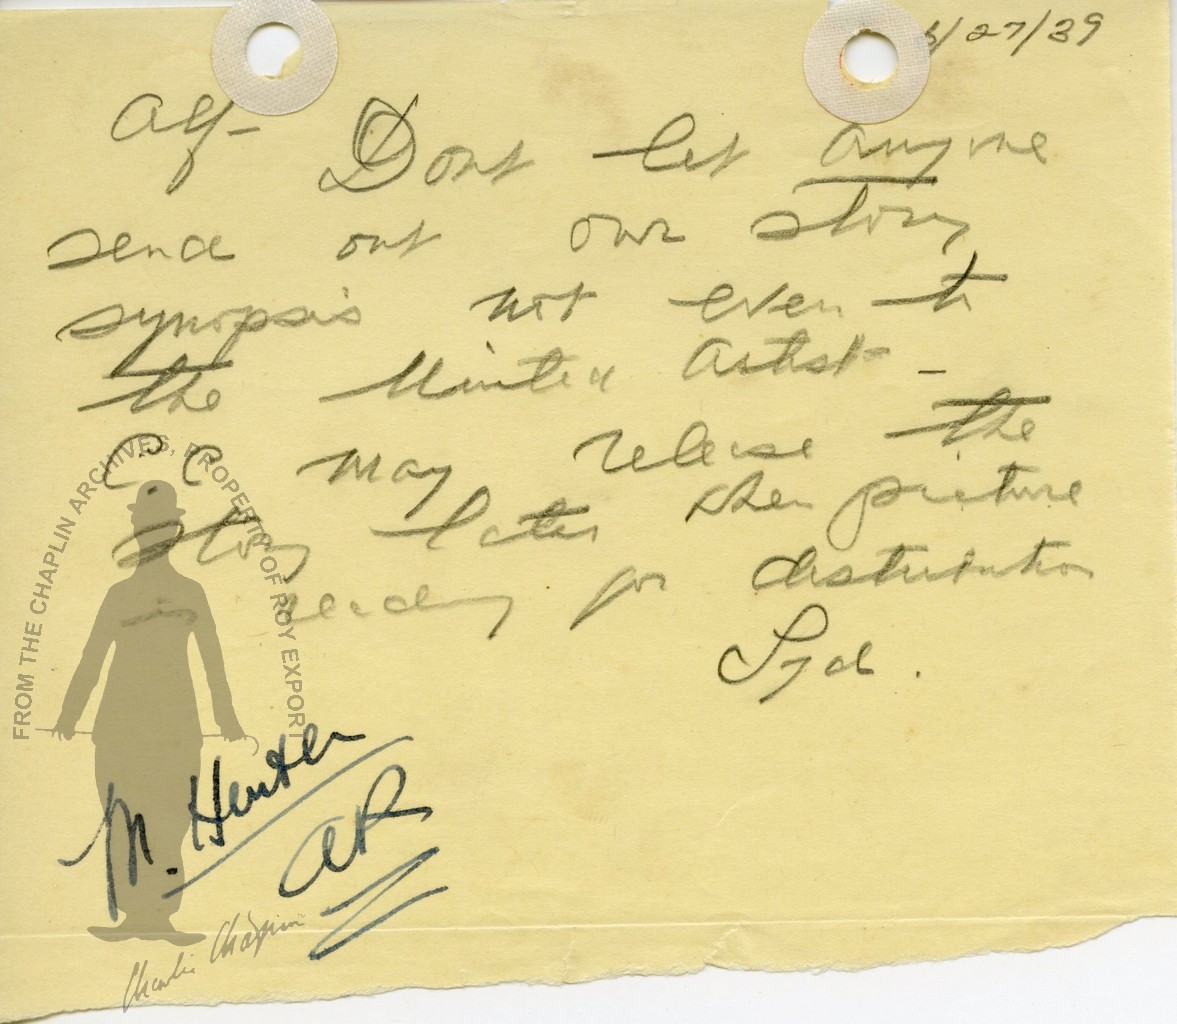 6/27/39
Alf - Dont let anyone
send out our story
synopsis not even to
the United Artists -
C.C may release the
story later when picture
is ready for distribution
Syd.
M. Hunter
AR
FROM THE CHAPLIN ARCHIVES, PROPERTY OF ROY EXPORT
Charlie Chaplin